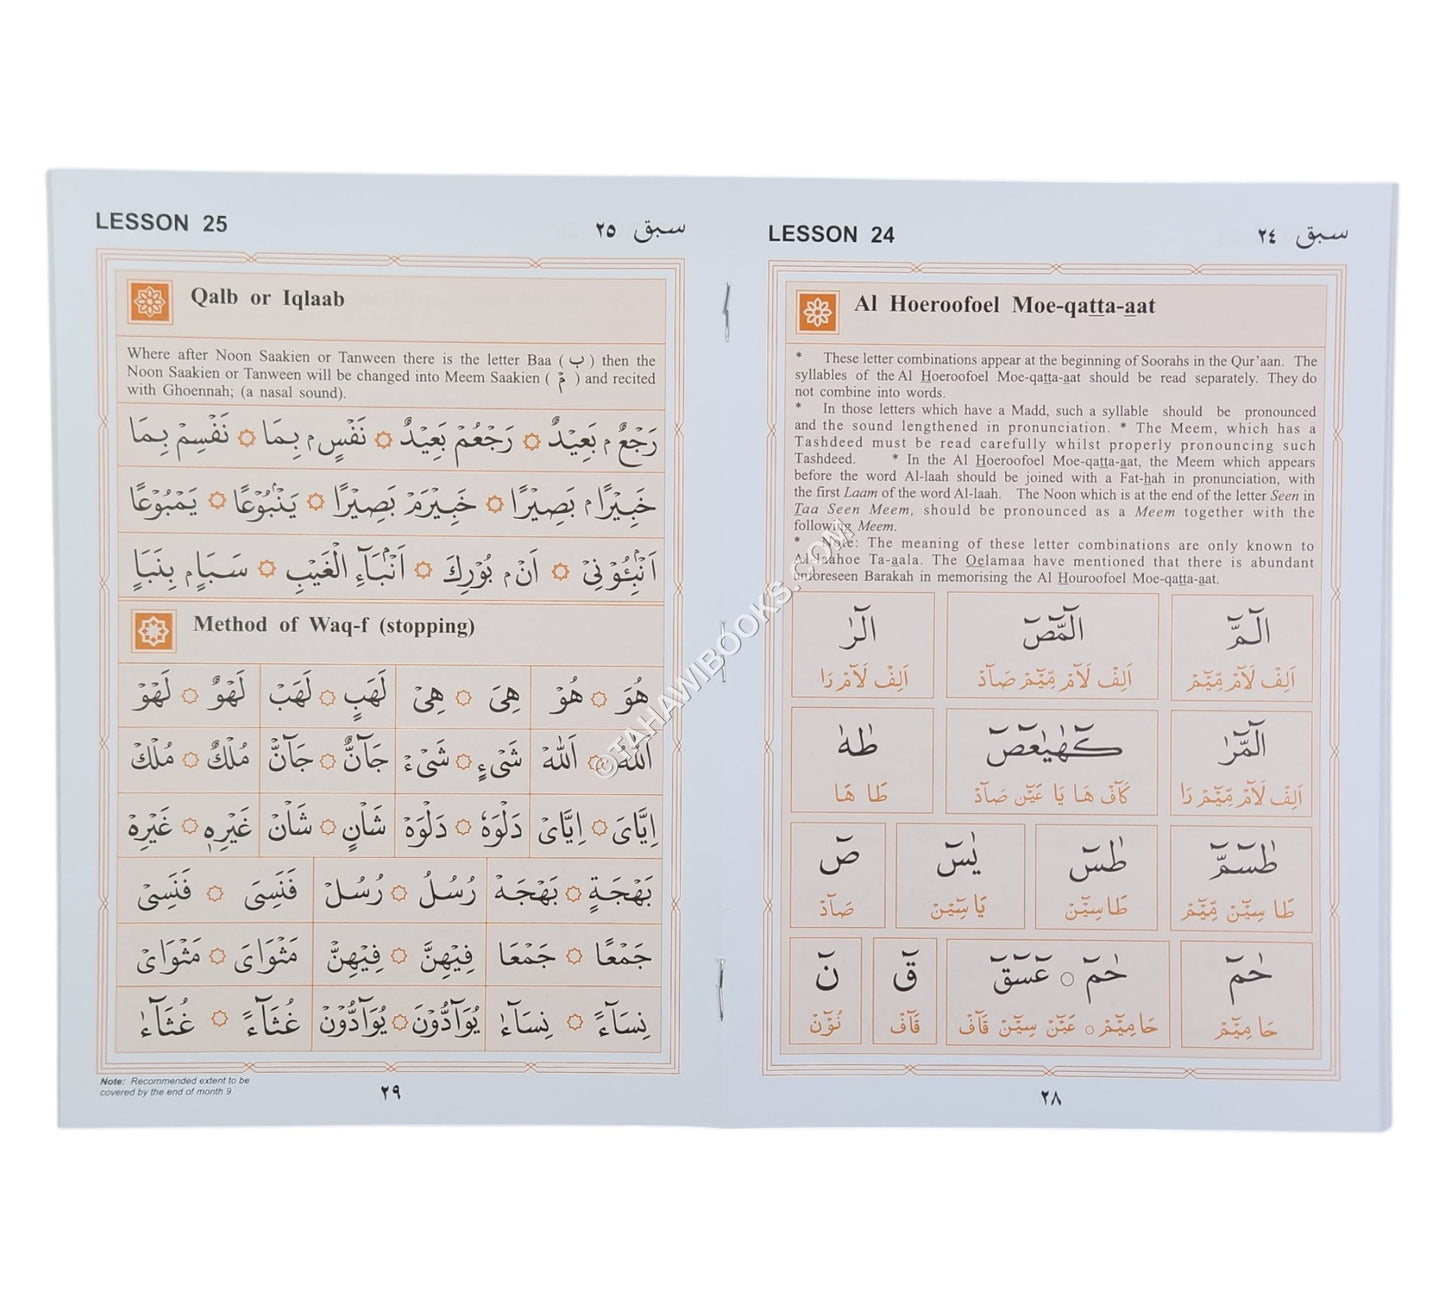 LESSON 24
سبق ٢٤
Al Hoeroofoel Moe-qatta-aat
* These letter combinations appear at the beginning of Soorahs in the Qur'aan. The
syllables of the Al Hoeroofoel Moe-qatta-aat should be read separately. They do
not combine into words.
* In those letters which have a Madd, such a syllable should be pronounced
and the sound lengthened in pronunciation. * The Meem, which has a
Tashdeed must be read carefully whilst properly pronouncing such
Tashdeed. * In the Al Hoeroofoel Moe-qatta-aat, the Meem which appears
before the word Al-laah should be joined with a Fat-hah in pronunciation, with
the first Laam of the word Al-laah. The Noon which is at the end of the letter Seen in
Taa Seen Meem, should be pronounced as a Meem together with the
following Meem.
* Note: The meaning of these letter combinations are only known to
Al-laahoe Ta-aala. The Oelamaa have mentioned that there is abundant
unforeseen Barakah in memorising the Al Houroofoel Moe-qatta-aat.
الٓمّٓ الٓمّٓصٓ الٓرٰ
اَلِفْ لَآمْ مِّيْٓمْ اَلِفْ لَآمْ مِّيْٓمْ صَآدْ اَلِفْ لَآمْ رَا
الٓمّٓرٰ كٓهٰيٰعٓصٓ طٰهٰ
اَلِفْ لَآمْ مِّيْٓمْ رَا كَآفْ هَا يَا عَيْٓنْ صَآدْ طَا هَا
طٰسٓمّٓ طٰسٓ يٰسٓ صٓ
طَا سِيْٓنْ مِّيْٓمْ طَا سِيْٓنْ يَا سِيْٓنْ صَآدْ
حٰمٓ حٰمٓ ○ عٓسٓقٓ قٓ نٓ
حَا مِيْٓمْ حَا مِيْٓمْ ○ عَيْٓنْ سِيْٓنْ قَآفْ قَآفْ نُوْٓنْ
٢٨
LESSON 25
سبق ٢٥
Qalb or Iqlaab
Where after Noon Saakien or Tanween there is the letter Baa ( ب ) then the
Noon Saakien or Tanween will be changed into Meem Saakien ( مْ ) and recited
with Ghoennah; (a nasal sound).
رَجْعٌۢ بَعِيْدٌ ۞ رَجْعُمْ بَعِيْدٌ ۞ نَفْسٍۢ بِمَا ۞ نَفْسِمْ بِمَا
خَبِيْرًاۢ بَصِيْرًا ۞ خَبِيْرَمْ بَصِيْرًا ۞ يَنْۢبُوْعًا ۞ يَمْبُوْعًا
اَنْۢبِئُوْنِيْ ۞ اَنْۢ بُوْرِكَ ۞ اَنْۢبَآءِ الْغَيْبِ ۞ سَبَاٍۢ بِنَبَاٍ
Method of Waq-f (stopping)
هُوَ ۞ هُوْ هِىَ ۞ هِىْ لَهَبٍ ۞ لَهَبْ لَهْوٌ ۞ لَهْوْ
اَللّٰهُ ۞ اَللّٰهْ شَىْءٍ ۞ شَىْءْ جَآنٌّ ۞ جَآنّْ مُلْكٌ ۞ مُلْكْ
اِيَّاىَ ۞ اِيَّاىْ دَلْوَهٗ ۞ دَلْوَهْ شَاْنٍ ۞ شَاْنْ غَيْرِهٖ ۞ غَيْرِهْ
بَهْجَةٍ ۞ بَهْجَهْ رُسُلُ ۞ رُسُلْ فَنَسِىَ ۞ فَنَسِىْ
جَمْعًا ۞ جَمْعَا فِيْهِنَّ ۞ فِيْهِنّْ مَثْوَاىَ ۞ مَثْوَاىْ
نِسَآءً ۞ نِسَآءٰ يُوَآدُّوْنَ ۞ يُوَآدُّوْنْ غُثَآءً ۞ غُثَآءٰ
Note: Recommended extent to be
covered by the end of month 9
٢٩
©TAHAWIBOOKS.COM